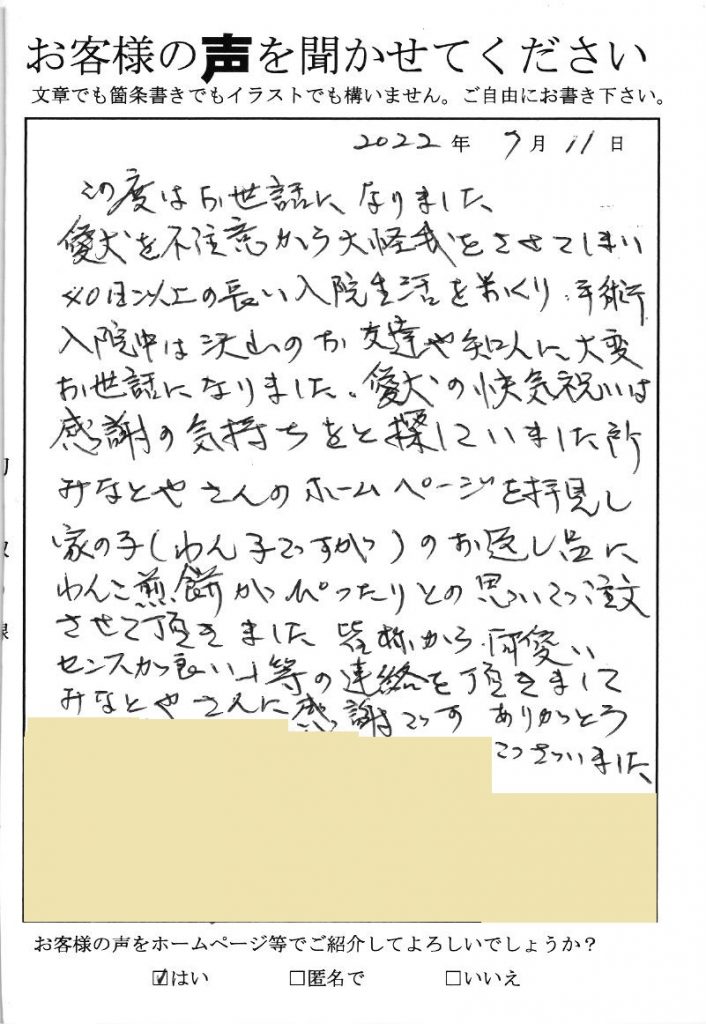 お客様の声を聞かせてください
文章でも箇条書きでもイラストでも構いません。ご自由にお書き下さい。
2022年 7月 11日
この度はお世話になりました
愛犬を不注意から大怪我をさせてしまい
40日以上の長い入院生活をおくり、手術
入院中は沢山のお友達や知人に大変
お世話になりました。愛犬の快気祝いは
感謝の気持ちをと探していました所
みなとやさんのホームページを拝見し
家の子(わん子ですが)のお返し品に
わんこ煎餅がぴったりとの思いで注文
させて頂きました 皆様から可愛い
センスが良い!等の連絡を頂きまして
みなとやさんに感謝です ありがとう
ございました
お客様の声をホームページ等でご紹介してよろしいでしょうか?
☑はい □匿名で □いいえ